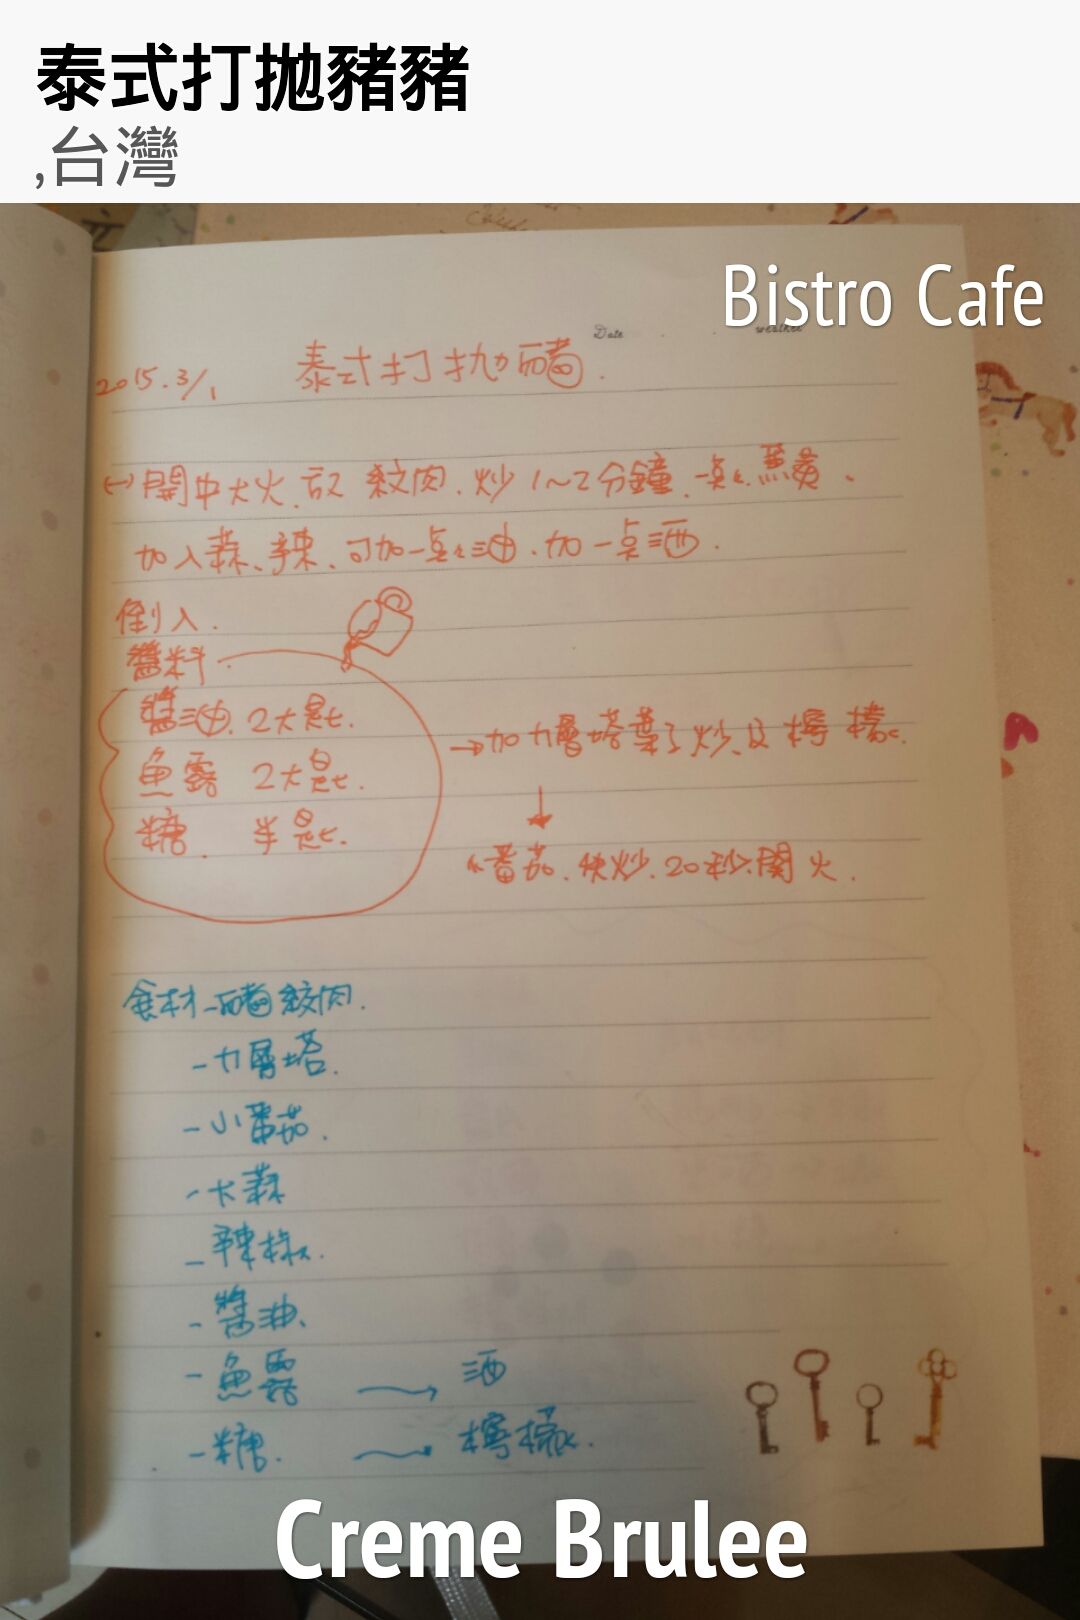 泰式打拋豬豬
,台灣
Bistro Cafe
Date . . weather
2015.3/1 泰式打拋豬.
(一)開中大火.放絞肉.炒1~2分鐘.
加入蒜、辣、可加一點油.加一點酒.
倒入.
醬料.
醬油.2大匙.
魚露 2大匙.
糖. 半匙.
→加九層塔葉子炒.及檸檬.
↓
小番茄.快炒.20秒.關火.
食材-豬絞肉.
-九層塔.
-小番茄.
-大蒜
-辣椒.
-醬油.
-魚露 → 酒
-糖. → 檸檬.
Creme Brulee